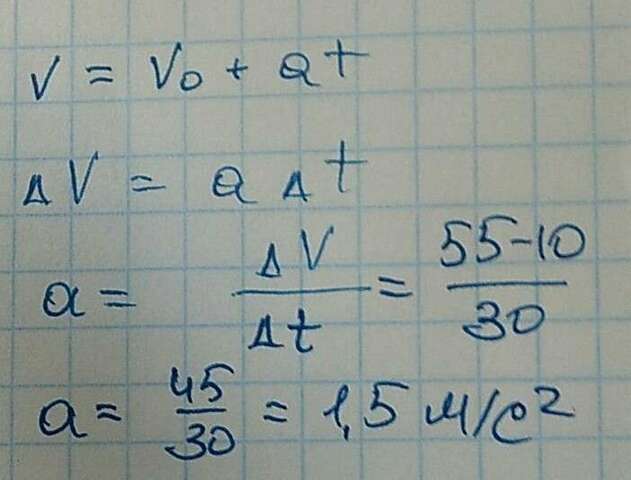 V = V₀ + at
ΔV = aΔt
a = ΔV/Δt = 55-10/30
a = 45/30 = 1,5 м/с²